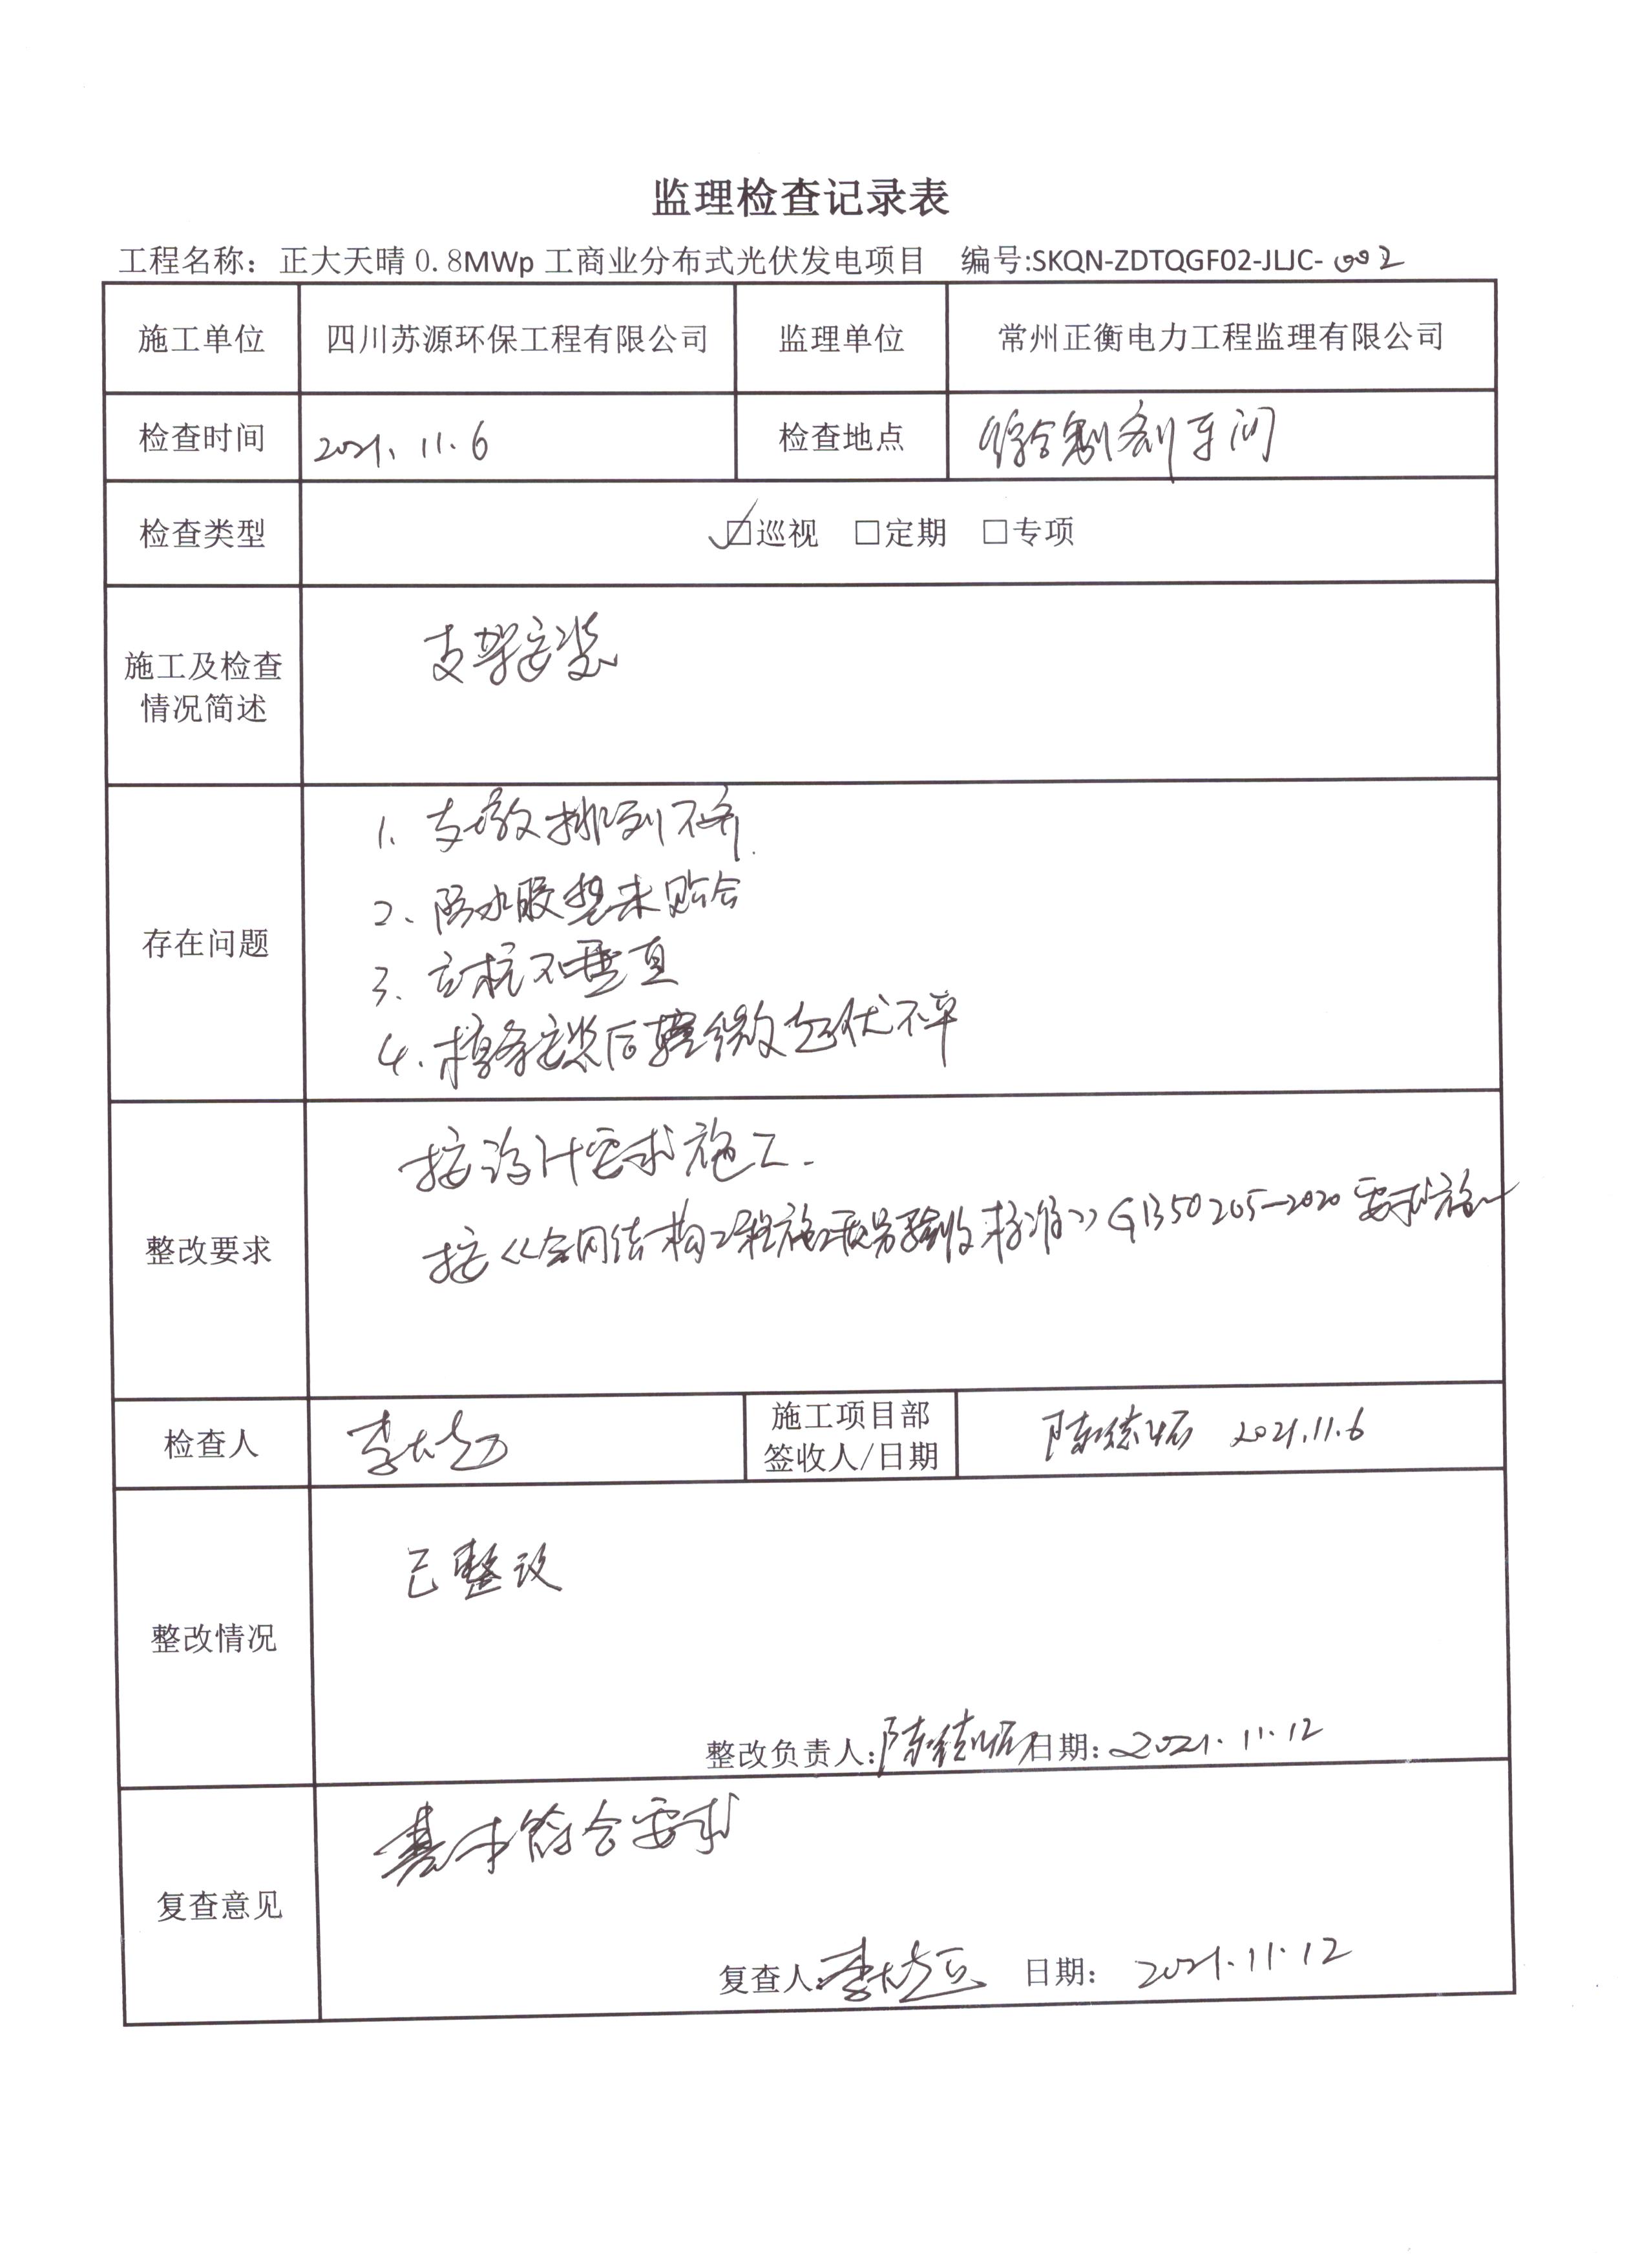 监理检查记录表
工程名称：正大天晴0.8MWp工商业分布式光伏发电项目 编号:SKQN-ZDTQGF02-JLJC-002
施工单位 四川苏源环保工程有限公司 监理单位 常州正衡电力工程监理有限公司
检查时间 2021.11.6 检查地点 综合制剂车间
检查类型 ☑巡视 □定期 □专项
施工及检查
情况简述
支架安装
存在问题
1. 支墩排列不齐.
2、防水胶垫未贴合
3. 立杭不垂直
4. 檩条安装后轻微起伏不平
整改要求
按设计要求施工.
按《全网结构工程施工质量验收标准》GB50205-2020要求施工
检查人 施工项目部
签收人/日期 2021.11.6
整改情况
已整改
整改负责人: 日期: 2021.11.12
复查意见
基本符合要求
复查人: 日期: 2021.11.12